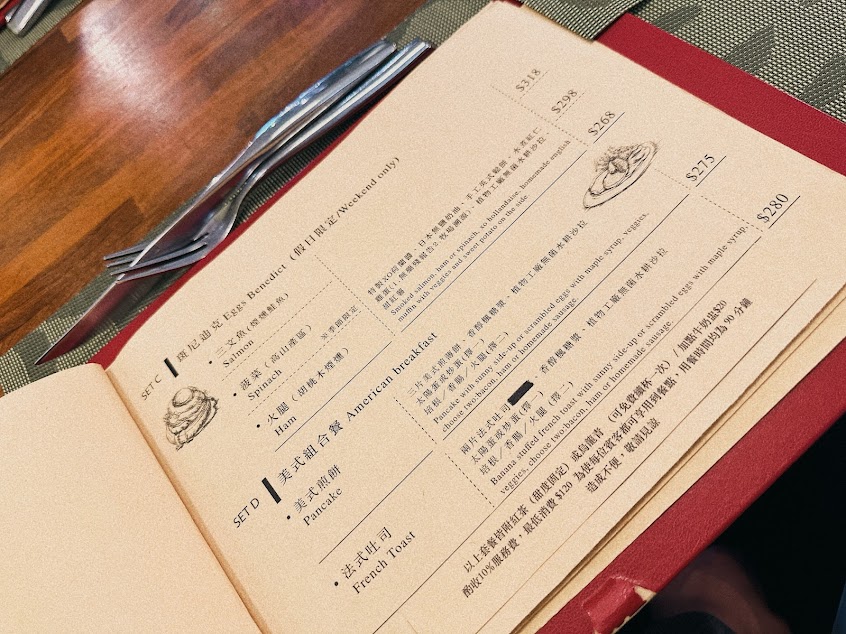 SET C
班尼迪克 Eggs Benedict (假日限定/Weekend only)
• 三文魚(煙燻鮭魚)
Salmon
$318
• 菠菜(高山產區) ※季節限定
Spinach
$298
• 火腿(胡桃木煙燻)
Ham
$268
特製XO荷蘭醬、日本無鹽奶油、手工英式鬆餅、水煮紅仁
雞蛋(1.無藥殘報告2.牧場溯源)、植物工廠無菌水耕沙拉
甜紅薯
Smoked salmon, ham or spinach, xo hollandaise, homemade english
muffin with veggies and sweet potato on the side.
SET D
美式組合餐 American breakfast
• 美式煎餅
Pancake
$275
三片美式煎薄餅、香醇楓糖漿、植物工廠無菌水耕沙拉
太陽蛋或炒蛋(擇一)
培根/香腸/火腿(擇一)
Pancake with sunny side-up or scrambled eggs with maple syrup, veggies,
choose two-bacon, ham or homemade sausage.
• 法式吐司
French Toast
$280
兩片法式吐司 、香醇楓糖漿、植物工廠無菌水耕沙拉
太陽蛋或炒蛋(擇一)
培根/香腸/火腿(擇一)
Banana stuffed french toast with sunny side-up or scrambled eggs with maple syrup,
veggies, choose two-bacon, ham or homemade sausage.
以上套餐皆附紅茶(甜度固定)或烏龍青(可免費續杯一次)/加點牛奶盅$20
酌收10%服務費，最低消費 $120 為使每位賓客都可享用到餐點，用餐時間均為 90 分鐘
造成不便，敬請見諒